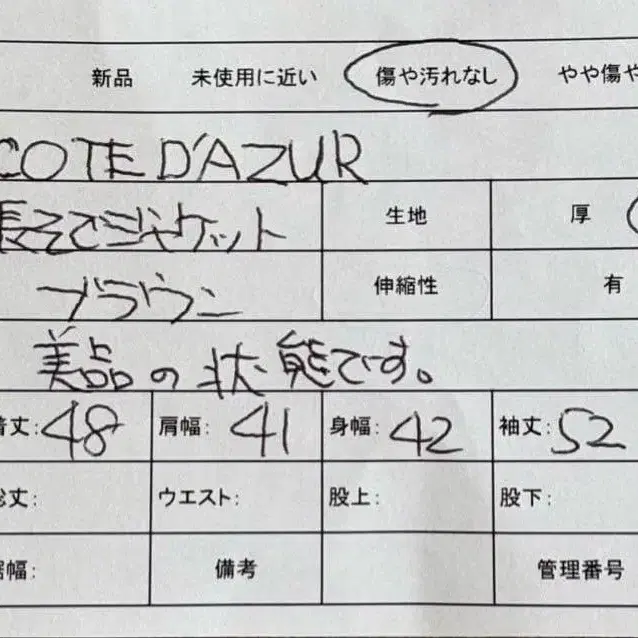 新品 未使用に近い 傷や汚れなし やや傷や
COTE D'AZUR
長そでジャケット 生地 厚
ブラウン 伸縮性 有
美品の状態です。
着丈: 48 肩幅: 41 身幅: 42 袖丈: 52
総丈: ウエスト: 股上: 股下:
裾幅: 備考 管理番号